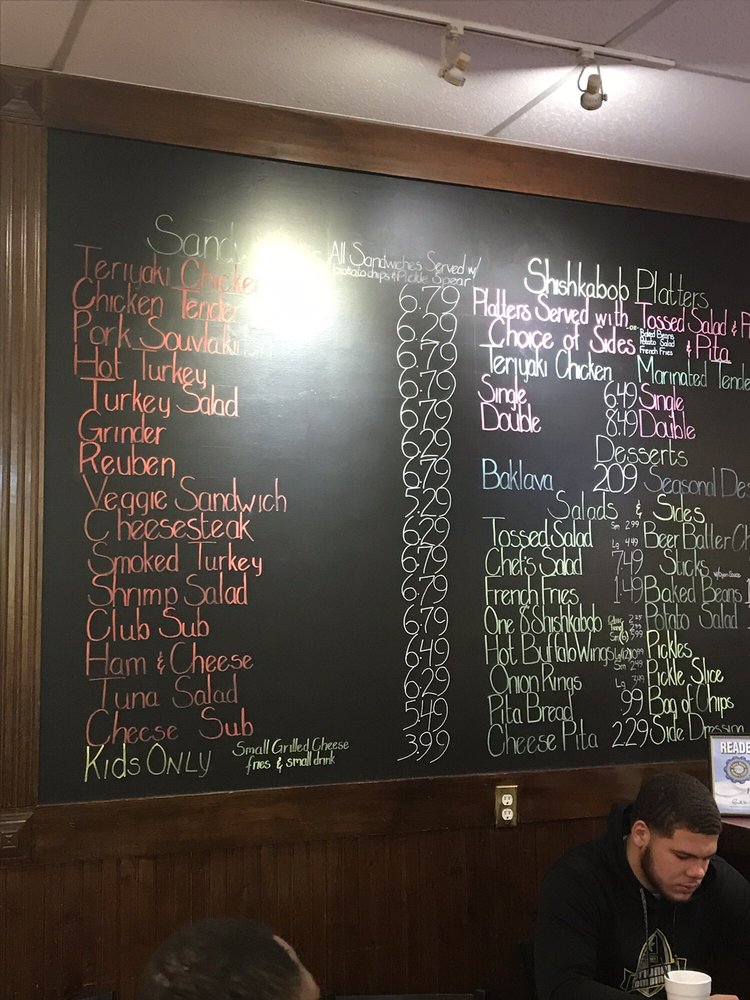 Sandw
All Sandwiches Served w/
potato chips & Pickle Spear
Teriyaki Chicken 6.79
Chicken Tender 6.29
Pork Souvlaki 6.79
Hot Turkey 6.79
Turkey Salad 6.79
Grinder 6.29
Reuben 6.79
Veggie Sandwich 5.29
Cheesesteak 6.29
Smoked Turkey 6.79
Shrimp Salad 6.79
Club Sub 6.79
Ham & Cheese 6.49
Tuna Salad 6.29
Cheese Sub 5.49
Kids ONLY Small Grilled Cheese 3.99
fries & small drink
Shishkabob Platters
Platters Served with Tossed Salad &
Choice of Sides or Baked Beans Potato Salad French Fries & Pita
Teriyaki Chicken Marinated Tende
Single 6.49 Single
Double 8.49 Double
Desserts
Baklava 2.09 Seasonal Des
Salads & Sides
Tossed Salad Sm 2.99 Lg 4.49 Beer Batter Ch
Chef's Salad 7.49 Sticks
French Fries 1.49 Baked Beans 1
One 8 Shishkabob Potato Salad 1
Hot Buffalo Wings Pickles
Onion Rings Sm 2.49 Lg 3.49 Pickle Slice
Pita Bread .99 Bag of Chips
Cheese Pita 2.29 Side Dressing
READE